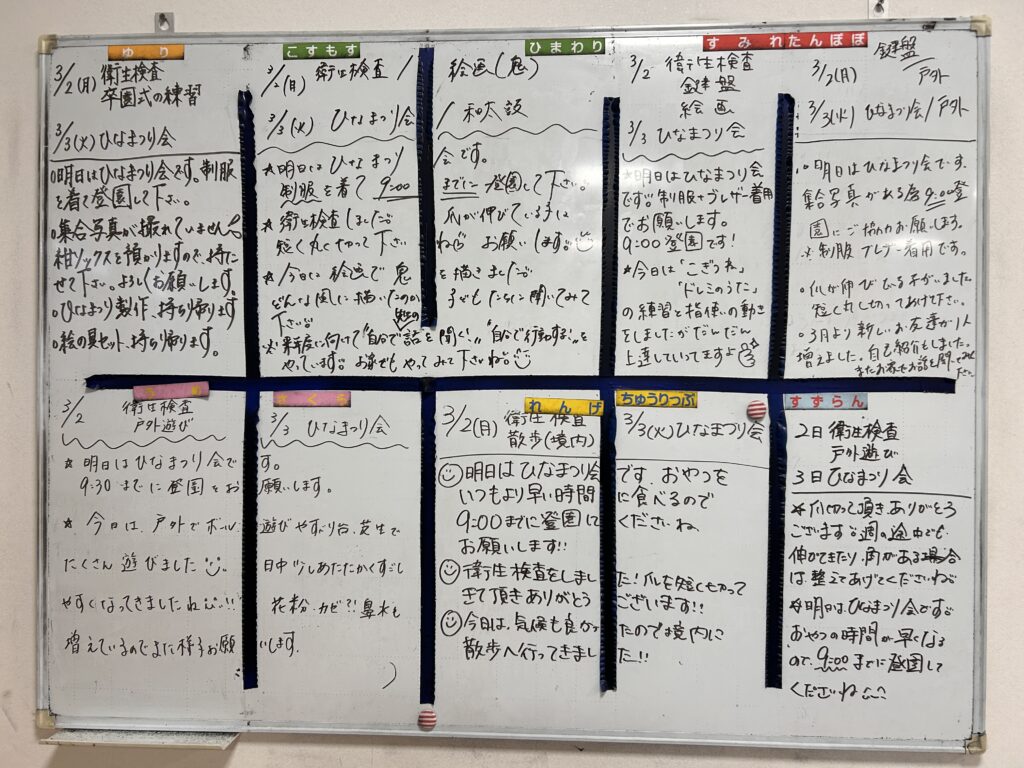 ゆり
3/2(月) 衛生検査
卒園式の練習
3/3(火)ひなまつり会
○明日はひなまつり会です。制服
を着て登園して下さい。
○集合写真が撮れていません。
紺ソックスを預かりますので、持た
せて下さい。よろしくお願いします。
○ひなまつり製作、持ち帰ります
○絵の具セット、持ち帰ります。
こすもす ひまわり
3/2(月) 衛生検査 / 絵画(鬼)
3/3(火) ひなまつり会 / 和太鼓
★明日は ひなまつり会です。
制服を着て 9:00までに 登園して下さい。
★衛生検査しました 爪が伸びている子は
短く丸く切って下さいね お願いします。
★今日は 絵画で 鬼を描きました
どんな風に描いたのか 子どもたちに聞いてみて
下さい
※来年度に向けて"自分で話を聞く""自分で行動する"を
やっています。お家でも やってみて下さいね。
すみれ たんぽぽ
3/2 衛生検査
鍵盤
絵画
3/3 ひなまつり会
★明日は ひなまつり会
です 制服+ブレザー着用
でお願いします。
9:00登園です!
★今日は「こぎつね」
「ドレミのうた」
の練習と指使いの動き
をしましたがだんだん
上達していってますよ
鍵盤
3/2(月) / 戸外
3/3(火) ひなまつり会 / 戸外
○明日はひなまつり会です。
集合写真がある為9:00登
園にご協力お願いします。
※制服 ブレザー着用です。
○爪が伸びている子がいました
短く丸く切ってあげて下さい。
○3月より新しいお友達が1人
増えました。自己紹介もしました。
またお家でお話を聞いてみて
下さい
さくら
3/2 衛生検査
戸外遊び
3/3 ひなまつり会
☆明日は ひなまつり会です。
9:30までに登園をお願いします。
★今日は、戸外でボール遊びやすべり台、芝生で
たくさん遊びました 日中少しあたたかくすごし
やすくなってきましたね!! 花粉、カゼ?!鼻水も
増えているのでまた様子お願いします。
れんげ ちゅうりっぷ
3/2(月) 衛生検査
散歩(境内)
3/3(火)ひなまつり会
明日は ひなまつり会です. おやつを
いつもより早い時間に食べるので
9:00までに登園してくださいね
お願いします!!
衛生検査をしました!爪を短く切って
きて頂きありがとうございます!!
今日は、気候も良かったので境内に
散歩へ行ってきました!!
すずらん
2日 衛生検査
戸外遊び
3日 ひなまつり会
★爪切って頂きありがとう
ございます 週の途中でも
伸びてきたり、角がある場合
は整えてあげてくださいね
★明日はひなまつり会です
おやつの時間が早くなる
ので、9:00までに登園して
くださいね